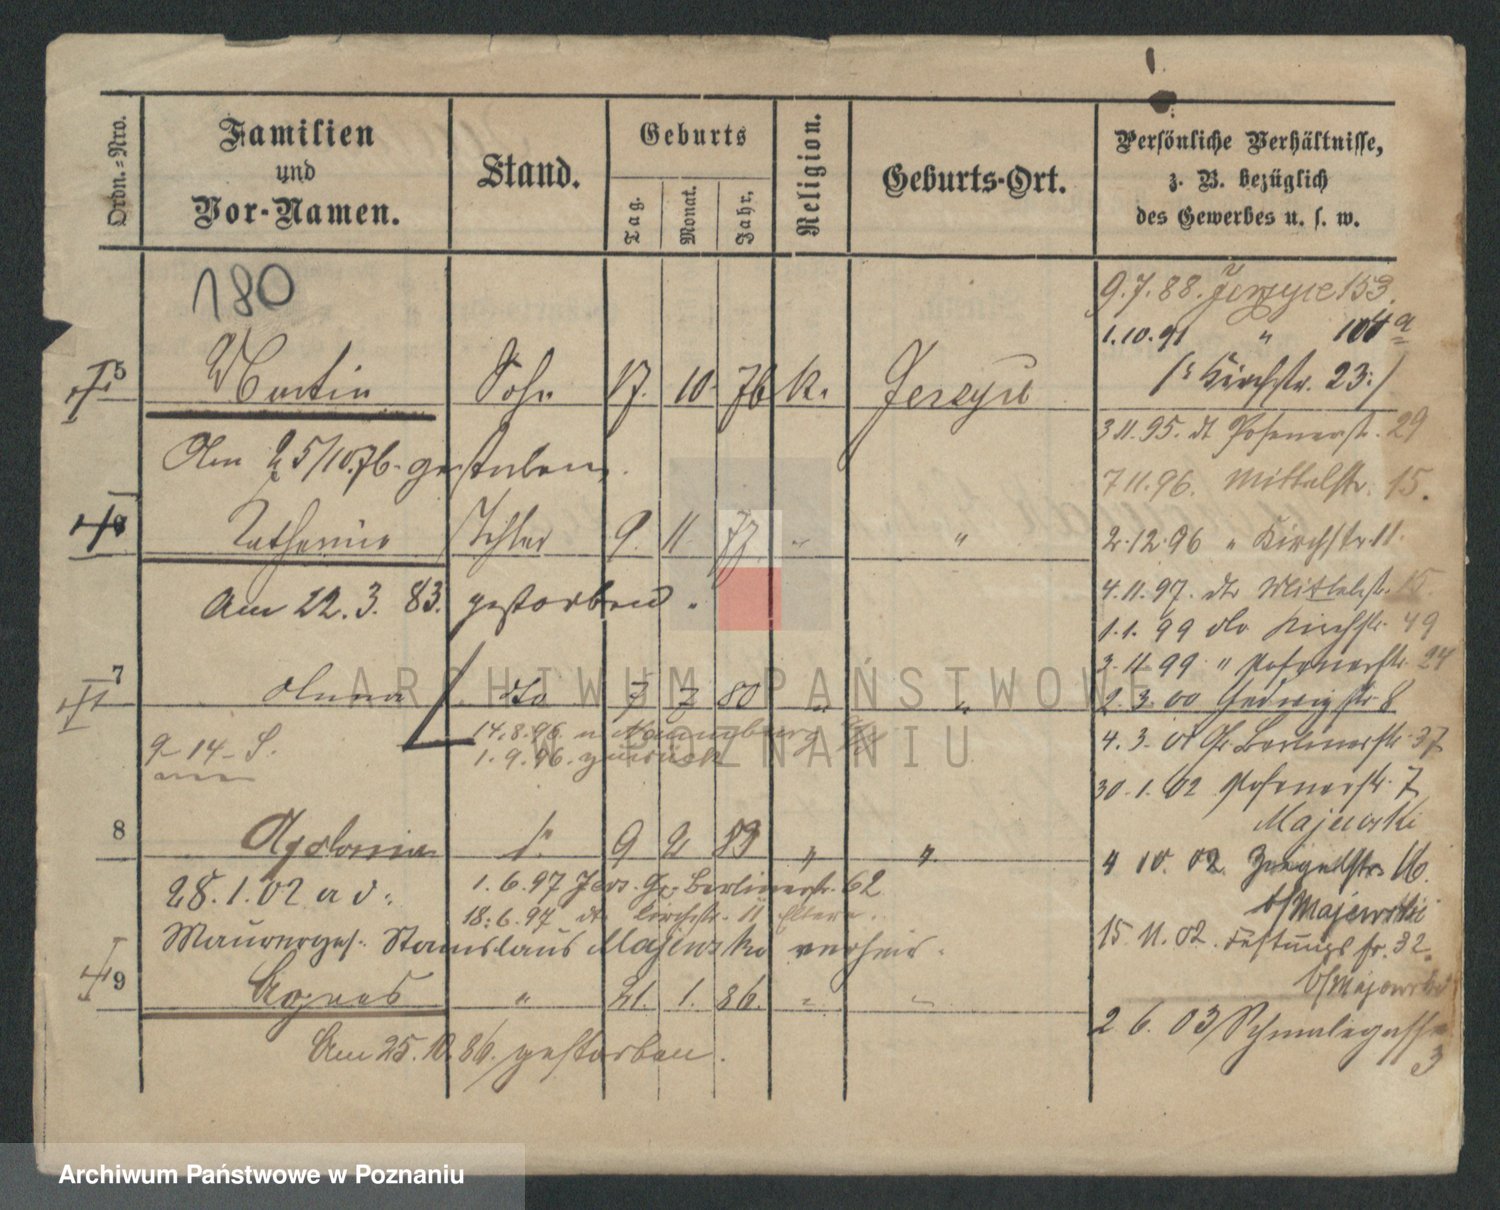 Ordn.=Nro.
Familien
und
Vor-Namen.
Stand.
Geburts
Tag.
Monat.
Jahr.
Religion.
Geburts-Ort.
Persönliche Verhältnisse,
z. B. bezüglich
des Gewerbes u. s. w.
180
9.7.88. Jerzyce 153.
1.10.91 " 104a
(: Kirchstr. 23:)
5 Martin Sohn 17. 10. 76 k. Jerzyce
3.11.95. dt Posenerst. 29
Am 25/10.76. gestorben.
7 11.96. Mittelstr. 15.
Catharina Tochter 9. 11. 77 " "
2.12.96 " Kirchstr. 11.
Am 22.3.83. gestorben.
4.11.97. dto Mittelstr. 15.
1.1.99 dto Kirchstr. 49
3.11.99 " Posenerstr. 24
7 Anna dto 7 7 80 " "
2.3.00 Hedwigstr. 8
14.8.96. n. Naumburg
4.3.01 Gr. Berlinerstr. 37
1.9.96. zurück
30.1.02 Posenerstr. 7
Majewski
8 Apolonia 9 2 83 " "
4 10.02. Ziegelstr. 16.
28.1.02 a d.
1.6.97 Jers. Gr. Berlinerstr. 62
b/Majewski
18.6.97 dto Kirchstr. 11 Eltern.
15.11.02. Festungsstr. 32.
Maurerges. Stanislaus Majewski verheir.
b/Majewski
9 Agnes " 21. 1. 86. " "
2 6. 03 Schmalegasse
3
Am 25.10.86. gestorben.
ARCHIWUM PAŃSTWOWE
W POZNANIU
Archiwum Państwowe w Poznaniu